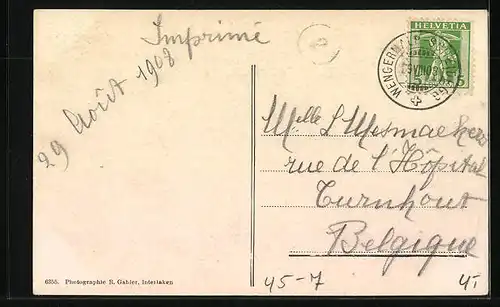 Imprimé
29 Août 1908
HELVETIA
5
WENGERNALP
Mlle L Mesmaekers
rue de l'Hôpital
Turnhout
Belgique
6355. Photographie R. Gabler, Interlaken
45-7
45